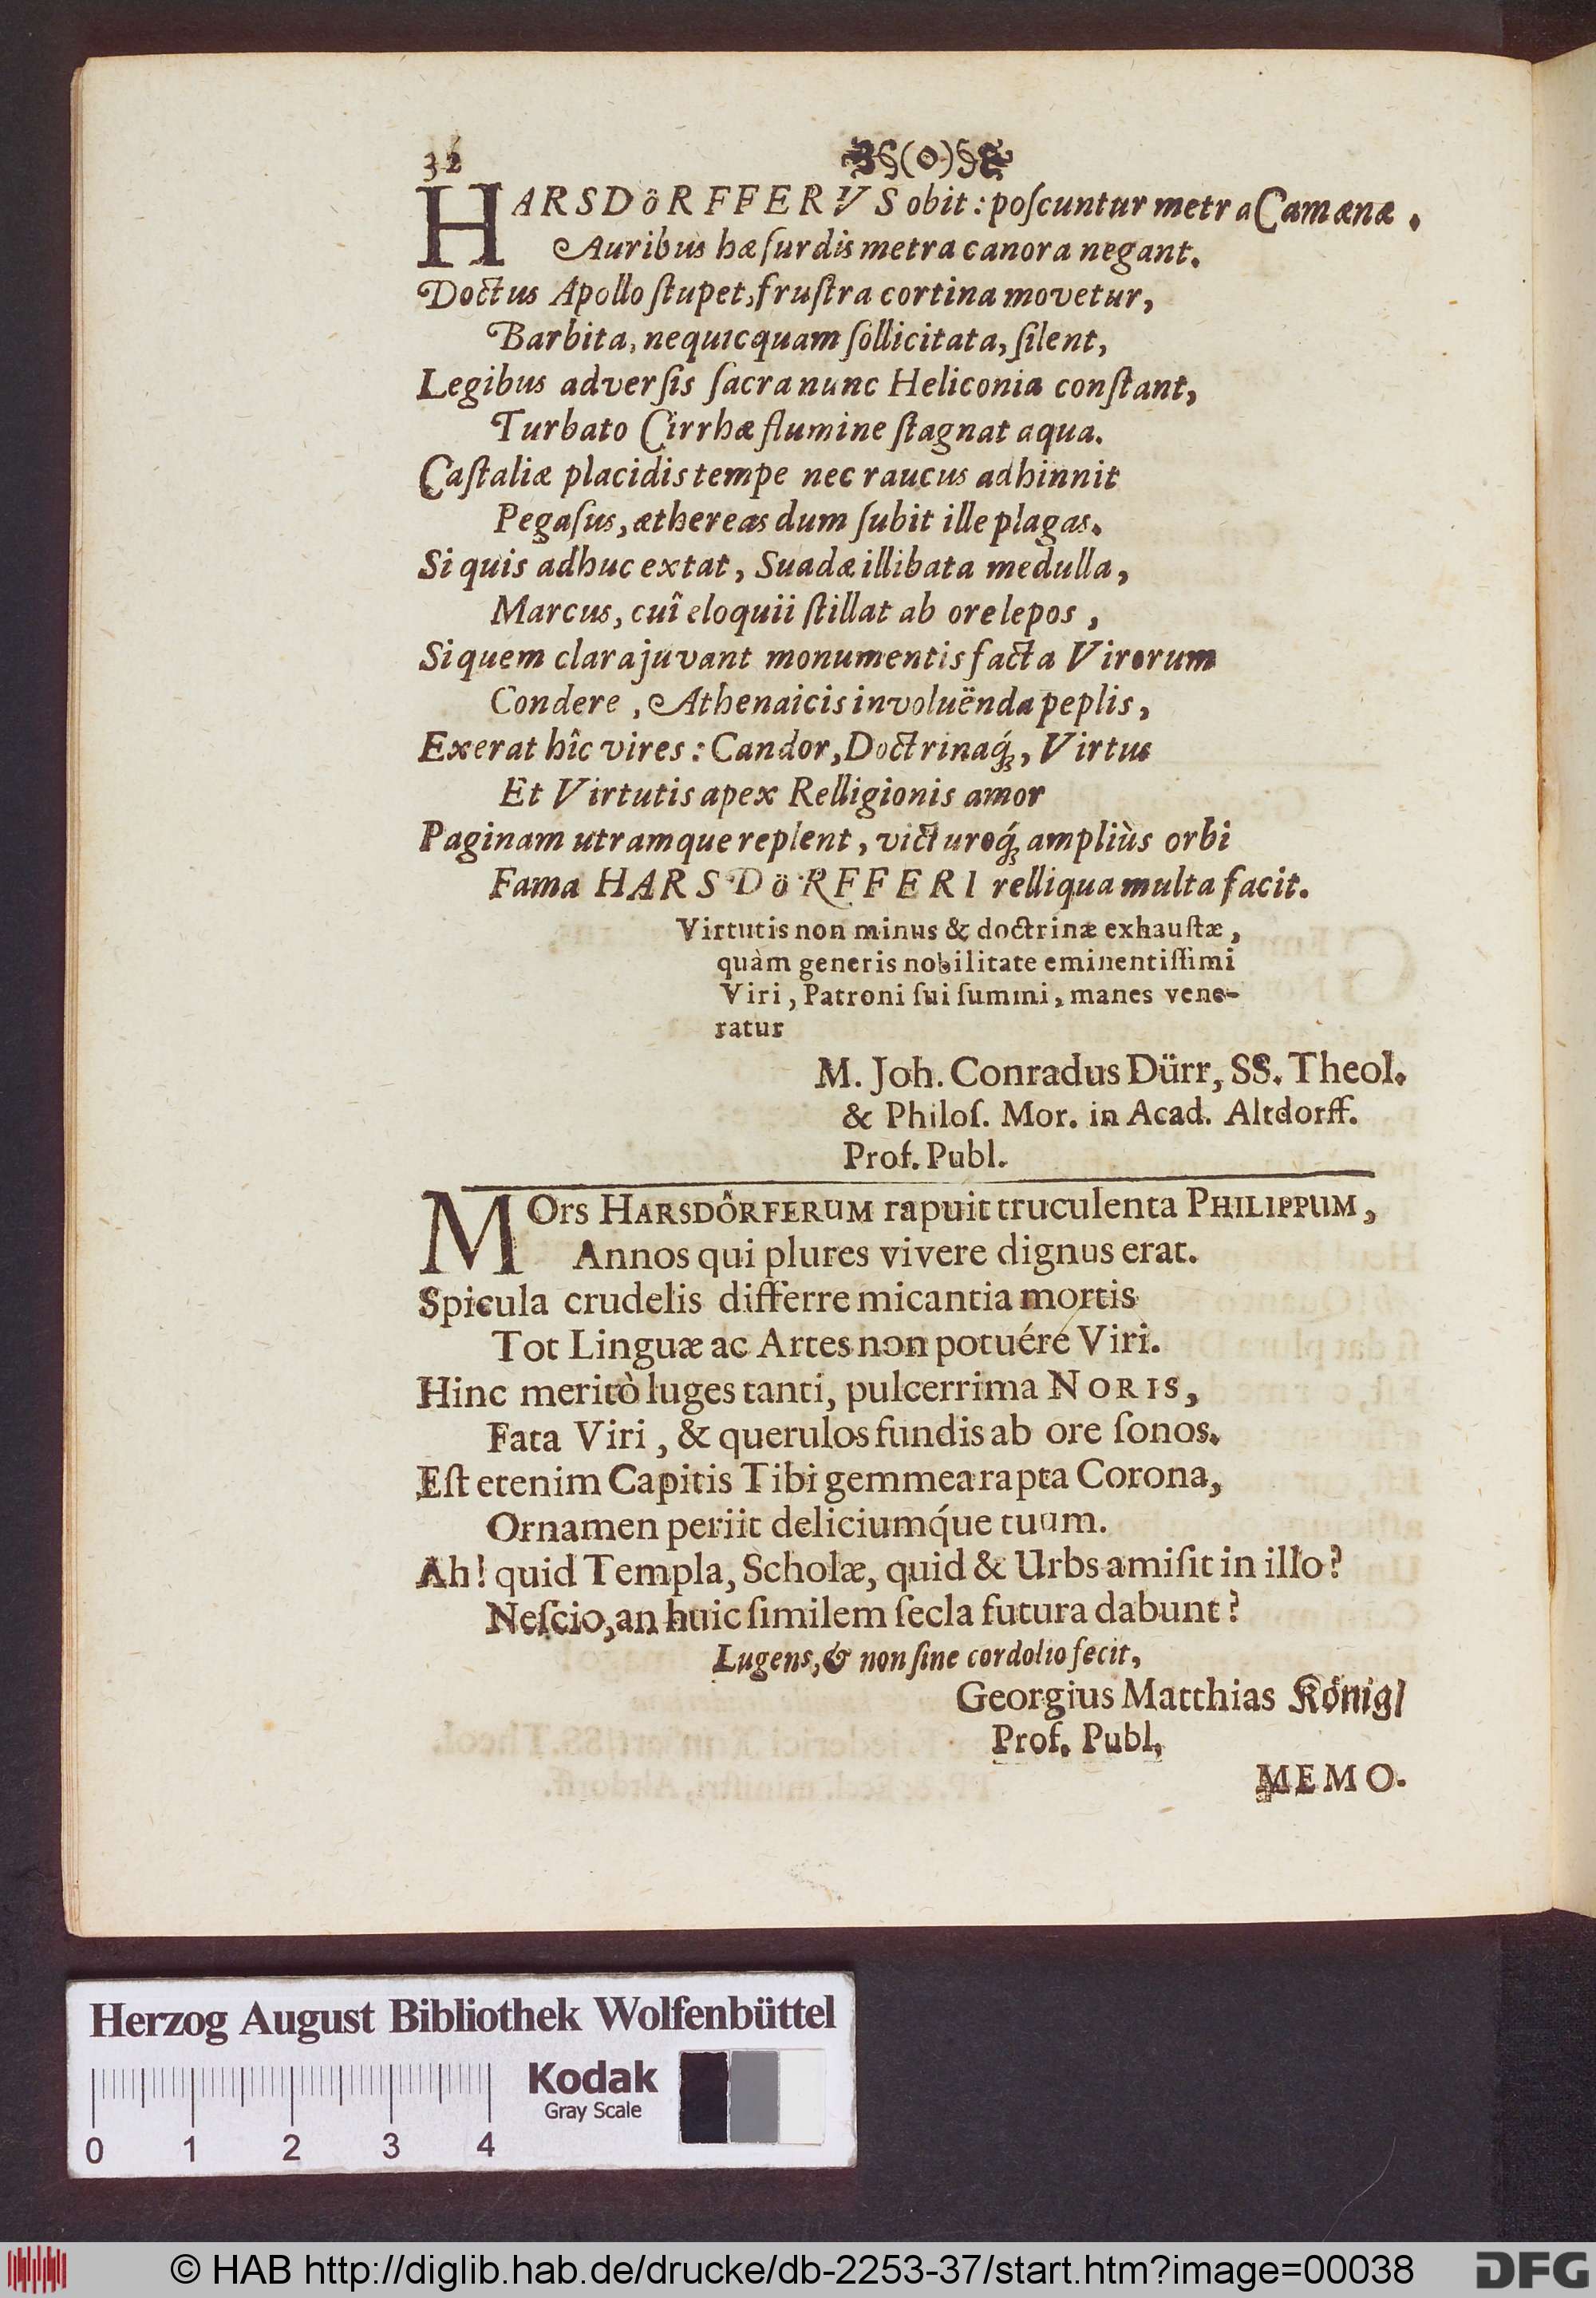 32 (o)
HARSDöRFFERVS obit: poſcuntur metra Camænæ.
Auribus hæ ſurdis metra canora negant.
Doctus Apollo ſtupet, fruſtra cortina movetur,
Barbita, nequicquam ſollicitata, ſilent,
Legibus adverſis ſacra nunc Heliconia conſtant,
Turbato Cirrhæ flumine ſtagnat aqua.
Caſtaliæ placidis tempe nec raucus adhinnit
Pegaſus, æthereas dum ſubit ille plagas.
Si quis adhuc extat, Suadæ illibata medulla,
Marcus, cuî eloquii ſtillat ab ore lepos,
Si quem clara juvant monumentis facta Virorum
Condere, Athenaicis involuënda peplis,
Exerat hîc vires: Candor, Doctrinaq́;, Virtus
Et Virtutis apex Relligionis amor
Paginam utramque replent, victuroq́; ampliùs orbi
Fama HARSDöRFFERI relliqua multa facit.
Virtutis non minus & doctrinæ exhauſtæ,
quàm generis nobilitate eminentiſſimi
Viri, Patroni ſui ſummi, manes vene-
ratur
M. Joh. Conradus Dürr, SS. Theol.
& Philoſ. Mor. in Acad. Altdorff.
Prof. Publ.
MOrs HARSDÔRFERUM rapuit truculenta PHILIPPUM,
Annos qui plures vivere dignus erat.
Spicula crudelis differre micantia mortis
Tot Linguæ ac Artes non potuére Viri.
Hinc meritò luges tanti, pulcerrima NORIS,
Fata Viri, & querulos fundis ab ore ſonos.
Eſt etenim Capitis Tibi gemmea rapta Corona,
Ornamen periit deliciumq́ue tuum.
Ah! quid Templa, Scholæ, quid & Urbs amiſit in illo?
Neſcio, an huic ſimilem ſecla futura dabunt?
Lugens, & non ſine cordolio fecit,
Georgius Matthias König/
Prof. Publ.
MEMO.
Herzog August Bibliothek Wolfenbüttel
Kodak
Gray Scale
0 1 2 3 4
© HAB http://diglib.hab.de/drucke/db-2253-37/start.htm?image=00038
DFG